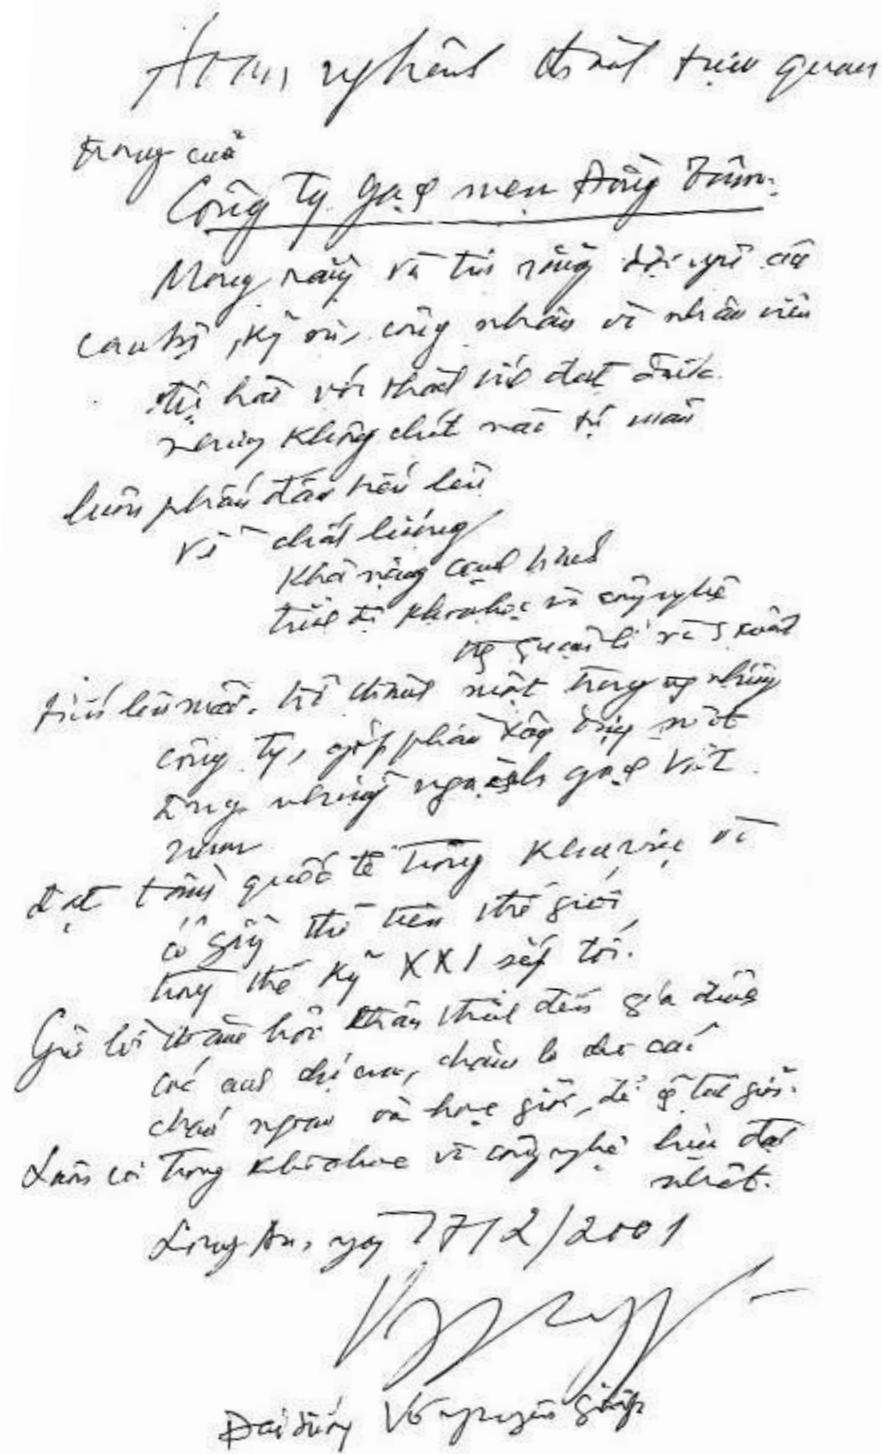 nghênh thành tựu quan
trọng của
Công ty gạch men Đồng Tâm.
Mong rằng và tin rằng đội ngũ các
cán bộ, kỹ sư, công nhân và nhân viên
tự hào với thành tích đạt được
nhưng không chút nào tự mãn
luôn phấn đấu tiến lên
về chất lượng
khả năng cạnh tranh
trình độ khoa học và công nghệ
quản lí và sản xuất
tiến lên nữa, trở thành một trong những
công ty, góp phần xây dựng một
trong những ngành gạch Việt
nam
đạt tầm quốc tế trong khu vực và
cố gắng thế giới
trong thế kỷ XXI sắp tới.
Gửi lời thăm hỏi thân thiết đến gia đình
các anh chị em, chăm lo cho các
cháu ngoan và học giỏi, để
Luôn coi trọng khoa học và công nghệ hiện đại
nhất.
Long An, ngày 17/2/2001
Đại tướng Võ Nguyên Giáp